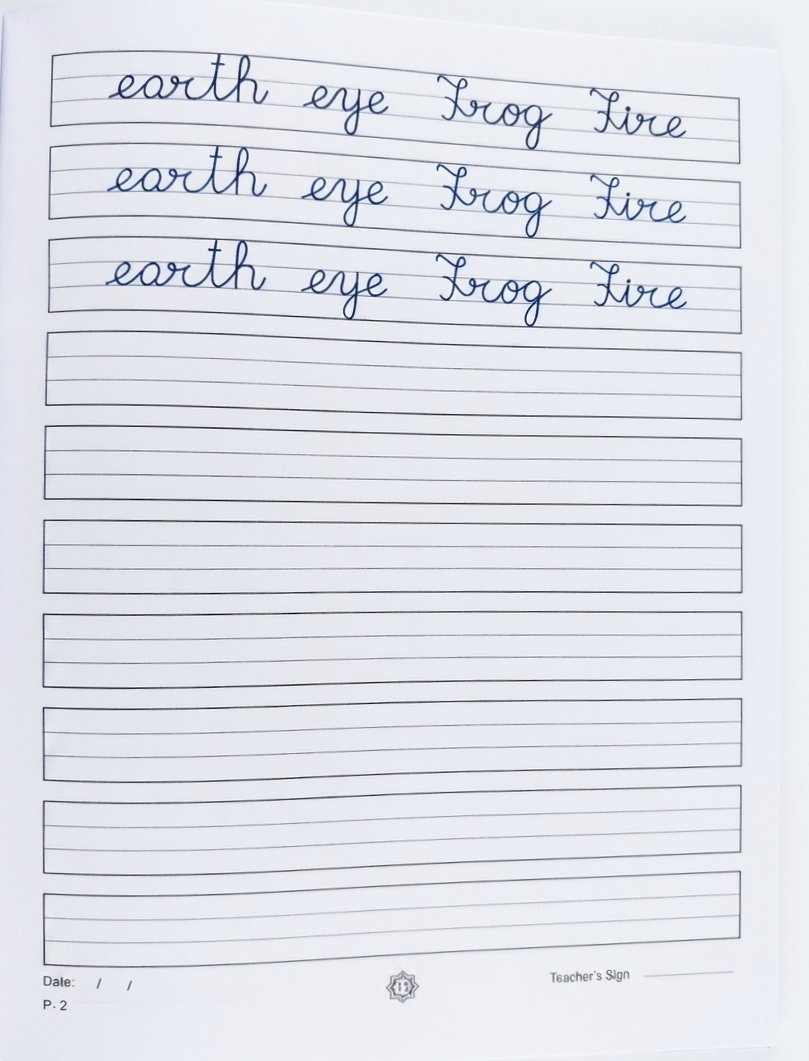 earth eye Frog Fire
earth eye Frog Fire
earth eye Frog Fire
Date: / /
Teacher's Sign
P. 2